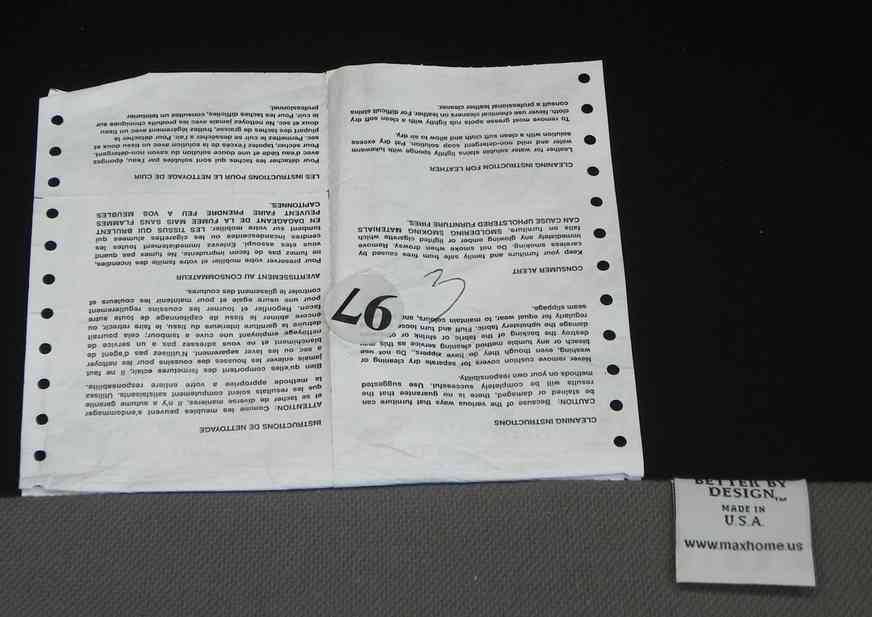 CLEANING INSTRUCTIONS
CAUTION: Because of the various ways that furniture can
be stained or damaged, there is no guarantee that the
results will be completely successful. Use suggested
methods on your own responsibility.
Never remove cushion covers for separate dry cleaning or
washing, even though they do have zippers. Do not use
bleach or any tumble method cleaning service as this
destroy the backing of the fabric or shrink or
damage the upholstery fabric. Fluff and turn
regularly for equal wear, to maintain colours, and
seam slippage.
CONSUMER ALERT
Keep your furniture and family safe from fires caused by
careless smoking. Do not smoke when drowsy. Remove
immediately any glowing ember or lighted cigarette which
falls on furniture. SMOLDERING SMOKING MATERIALS
CAN CAUSE UPHOLSTERED FURNITURE FIRES.
CLEANING INSTRUCTION FOR LEATHER
Leather for water soluble stains lightly sponge with lukewarm
water and mild non-detergent soap solution. Pat dry excess
solution with a clean soft cloth and allow to air dry.
To remove most grease spots rub lightly with a clean soft dry
cloth. Never use chemical cleaners on leather. For difficult stains
consult a professional leather cleaner.
97
3
INSTRUCTIONS DE NETTOYAGE
ATTENTION: Comme les meubles peuvent s'endommager
et se tacher de diverse manieres, il n'y a autune garantie
que les resultats soient complement satisfaisants. Utilisez
la methode appropriee a votre entiere responsabilite.
Bien qu'elles comportent des fermetures eclair, il ne faut
jamais enlever les housses des coussins pour les nettoyer
a sec ou les laver separement. N'utilisez pas d'agent de
blanchiment et ne vous adresses pas a un service de
nettoyage employant une cuve a tambour, cela pourrait
detruire la garniture interieure du tissu, le faire retrecir, ou
encore abimer le tissu de capitonnage de toute autre
facon. Regonfler et tourner les coussins regulierement
pour une usure egale et pour maintenir les couleurs et
controler le glissement des coutures.
AVERTISSEMENT AU CONSOMMATEUR
Pour preserver votre mobilier et votre famille des incendies,
ne fumez pas de facon imprudente. Ne fumez pas quand
vous etes assoupi. Enlevez immediatement toutes les
cendres incandescentes ou les cigarettes allumees qui
tombent sur votre mobilier. LES TISSUS QUI BRULENT
EN DAGAGEANT DE LA FUMEE MAIS SANS FLAMMES
PEUVENT FAIRE PRENDRE FEU A VOS MEUBLES
CAPITONNES.
LES INSTRUCTIONS POUR LE NETTOYAGE DE CUIR
Pour détacher les taches qui sont solubles par l'eau, épongez
avec l'eau tiède et une douce solution du savon non-détergent.
Pour sécher, tapotez l'excès de la solution avec un tissu doux et
sec. Permettez le cuir se déssécher a l'air. Pour détacher la
plupart des taches de graisse, frottez légèrement avec un tissu
doux et sec. Ne nettoyez jamais avec les produits chimiques
le cuir. Pour les taches difficiles, consultez un teinturier
professionnel.
BETTER BY
DESIGN™
MADE IN
U.S.A.
www.maxhome.us